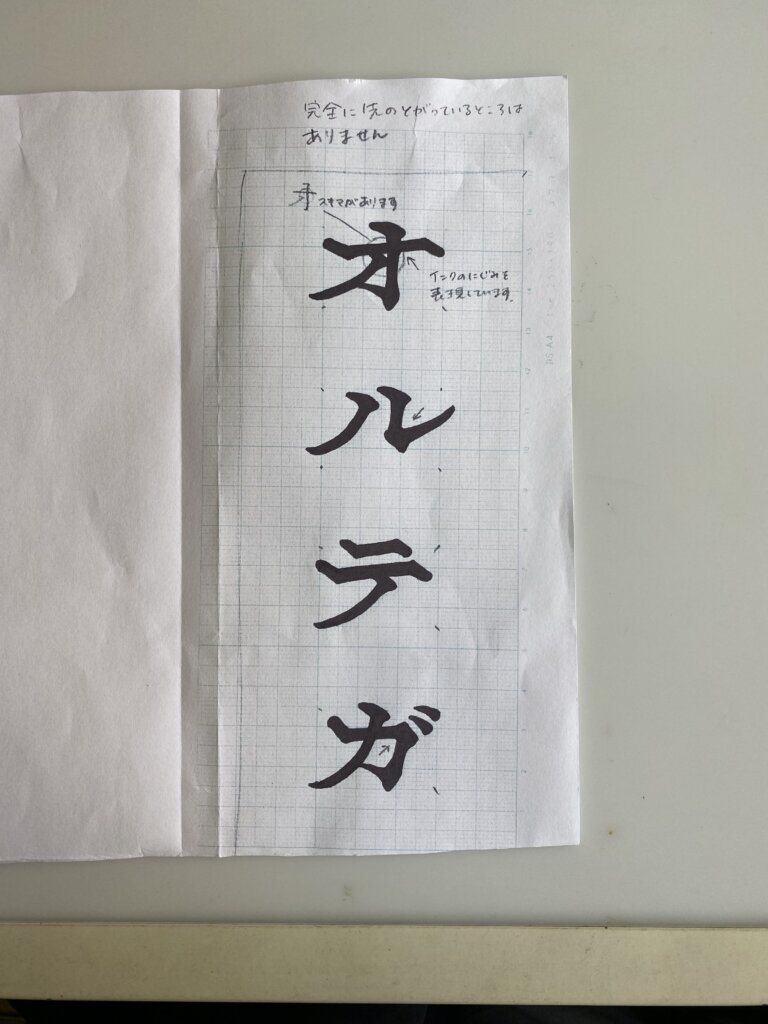 完全に先のとがっているところは
ありません
オ スキマがあります
インクのにじみを
表現しています。
オ
ル
テ
ガ